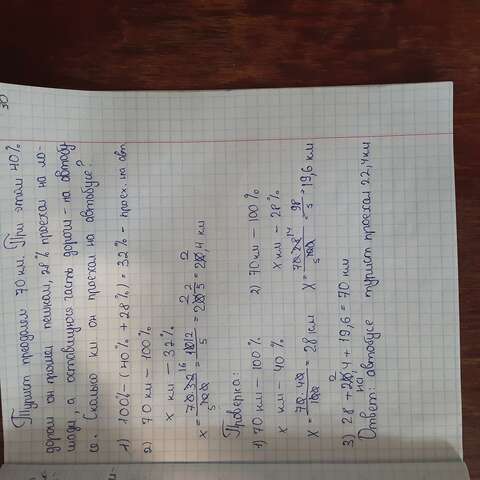 30
Турист преодолел 70 км. При этом 40%
дороги он прошёл пешком, 28% проехал на ло-
шади, а оставшуюся часть дороги - на автобу
се. Сколько км он проехал на автобусе?
1) 100% - (40% + 28%) = 32% - проех. на авт.
2) 70 км - 100%
х км - 32%
х = 70·32/100 = 112/5 = 22,4 км
Проверка:
1) 70 км - 100% 2) 70 км - 100%
х км - 40% х км - 28%
Х = 70·40/100 = 28 км Х = 70·28/100 = 98/5 = 19,6 км
3) 28 + 22,4 + 19,6 = 70 км
Ответ: на автобусе турист проехал 22,4 км